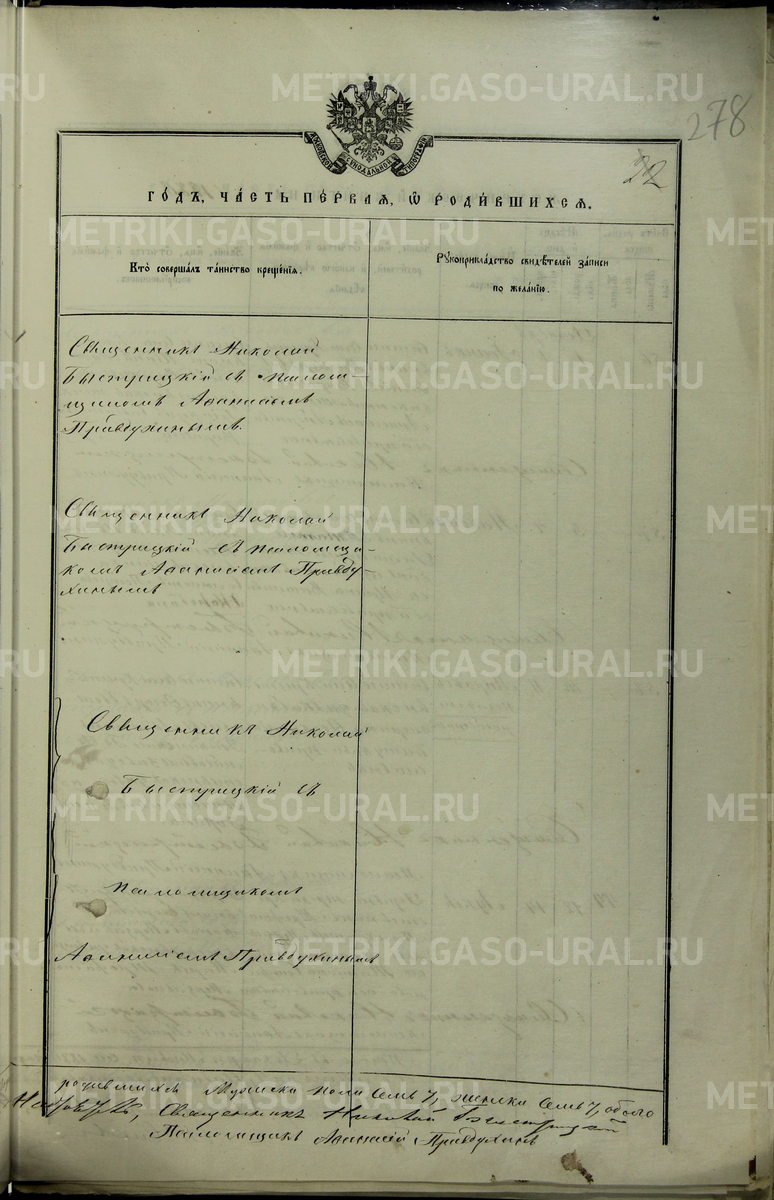 METRIKI.GASO-URAL.RU
278
22
ДУХОВНОЙ СѴНОДАЛЬНОЙ ТИПОГРАФІИ
ГО́ДЪ, ЧА́СТЬ ПЕ́РВАѦ, Ѡ РОДИ́ВШИХСѦ.
Кто̀ совершалъ та́инство креще́нїѧ.
Рꙋкоприкла́дство свидѣ́телей за́писи
по жела́нїю.
Священникъ Николай
Быстрицкій съ псалом-
щикомъ Аѳанасіемъ
Правдухинымъ.
Священникъ Николай
Быстрицкій съ псаломщи-
комъ Аѳанасіемъ Правду-
хинымъ
Священникъ Николай
Быстрицкій съ
псаломщикомъ
Аѳанасіемъ Правдухинымъ
родившихся Мужска пола семь 7, женска семь 7, обоего
Священникъ Николай Быстрицкій
Псаломщикъ Аѳанасій Правдухинъ